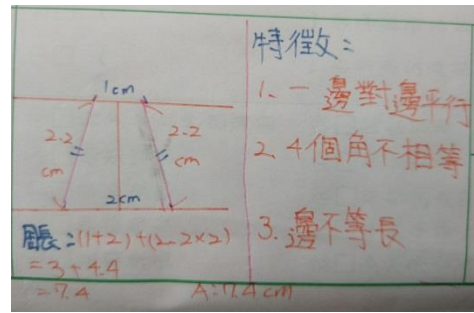 1cm
2.2
cm
2.2
cm
2cm
周長：(1+2)+(2.2×2)
=3+4.4
=7.4
A:7.4cm
特徵：
1、一邊對邊平行
2、4個角不相等
3、邊不等長